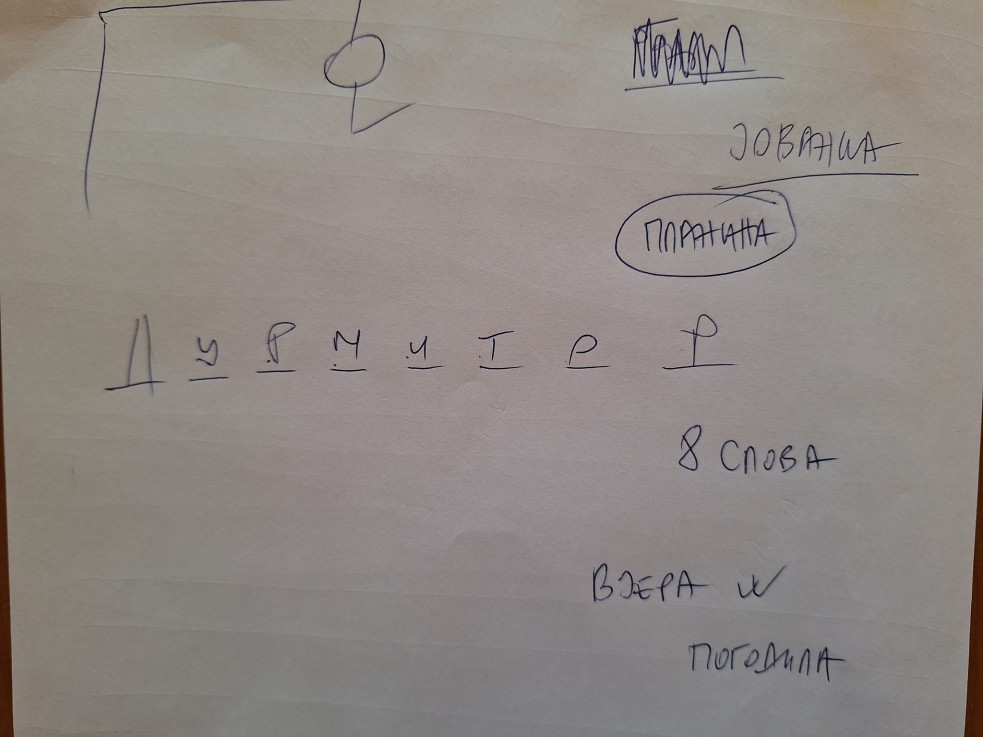 ЈОВАНКА
ПЛАНИНА
Д У Р М И Т О Р
8 СЛОВА
ВЈЕРА
ПОГОДИЛА